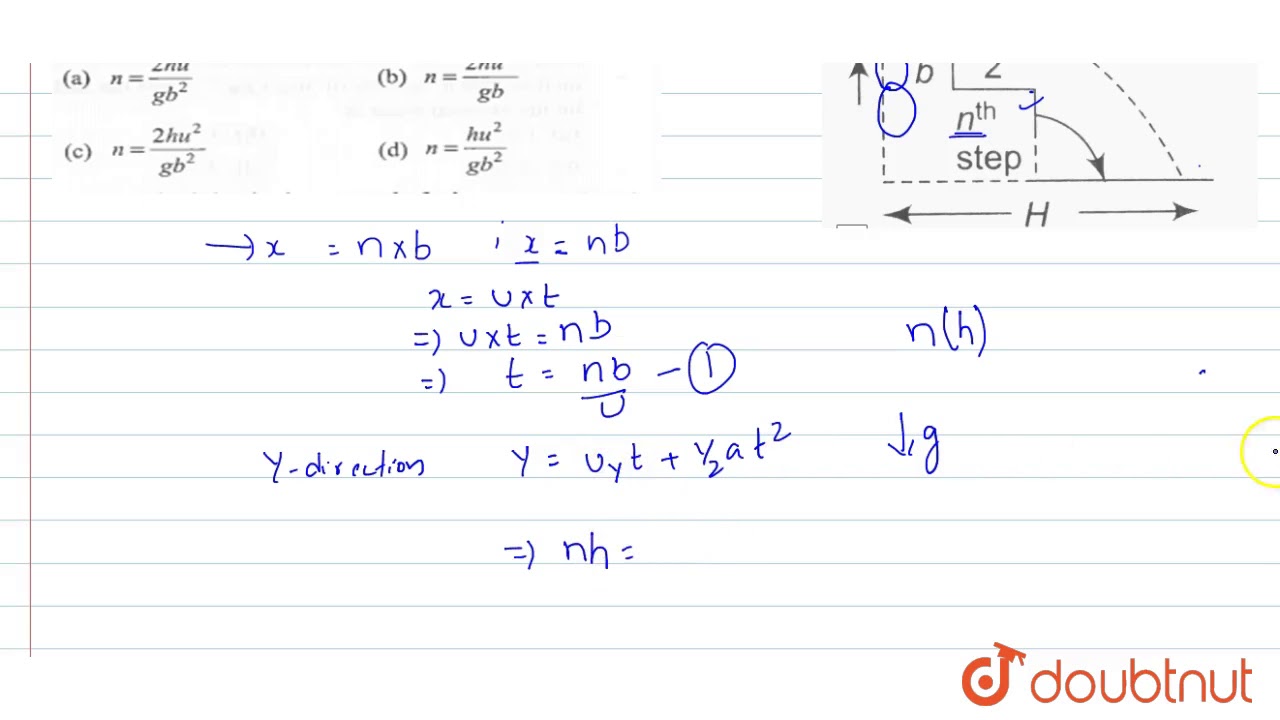 (a) n = 2hu / gb² (b) n = 2hu / gb
(c) n = 2hu² / gb² (d) n = hu² / gb²
b 2
nth
step
H
→ x = n × b ; x = nb
x = u × t
⇒ u × t = nb
⇒ t = nb / u - ①
n(h)
Y-direction Y = uyt + 1/2 a t² ↓g
⇒ nh =
doubtnut